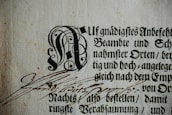 Auf gnädigstes Anbefehl
Beambte und Sch
nahmster Orten / be
tig und hoch-angelege
gleich nach dem Emp
von Or
Nachts / also bestellen / damit
ringste Verabsäumung / und